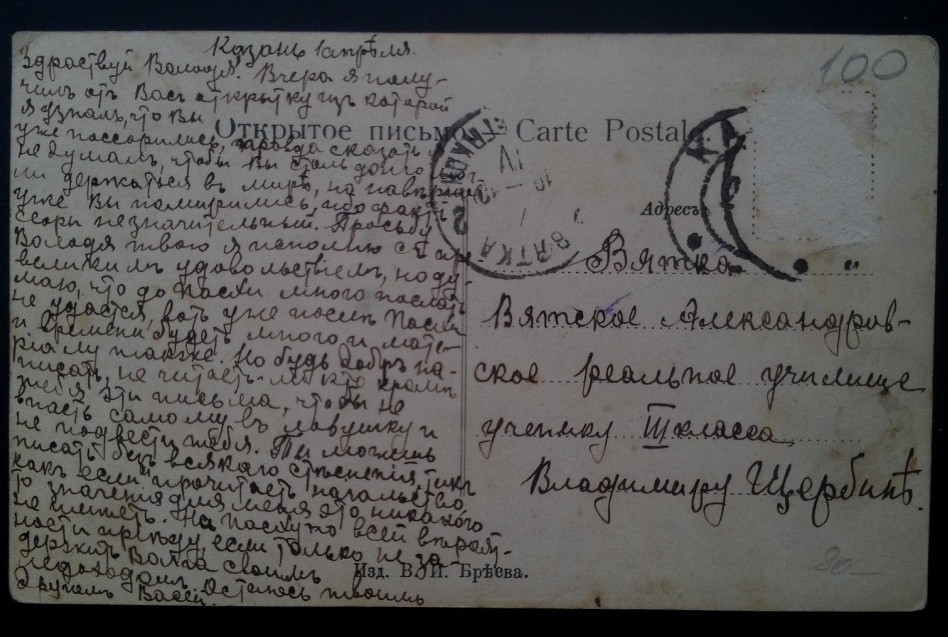 Казань 1 апрѣля
Здраствуй Володя. Вчера я полу-
чилъ отъ Васъ открытку изъ которой
я узналъ, что Вы
уже поссорились, правда сказать
не думалъ, чтобы Вы столь долго мог-
ли держаться въ мирѣ, но навѣрное
уже Вы помирились, ибо фактъ
ссоры незначительный. Просьбу
Володя твою я исполню съ
великимъ удовольствіемъ, но ду-
маю, что до Пасхи много послать
не удастся, вотъ уже послѣ Пасхи
и времени будетъ много и мате-
ріалу также. Но будь добръ на-
писать, не читаетъ-ли кто кромѣ
тебя эти письма, чтобы не
впасть самому въ ловушку и
не подвести тебя. Ты можешь
писать безъ всякаго стѣсненія, такъ
какъ если прочитаетъ начальство,
то значенія для меня это никакого
не имѣетъ. На пасху по всей вѣроят-
ности пріѣду, если только не за-
держитъ Волга своимъ
ледоходомъ. Остаюсь твоимъ
другомъ Васей.
Открытое письмо. — Carte Postale.
100
ВЯТКА
IV
2
К
Адресъ
Вятка
Вятское Александров-
ское реальное училище
ученику III класса
Владимиру Щербинѣ.
Изд. В. И. Брѣева.
20—